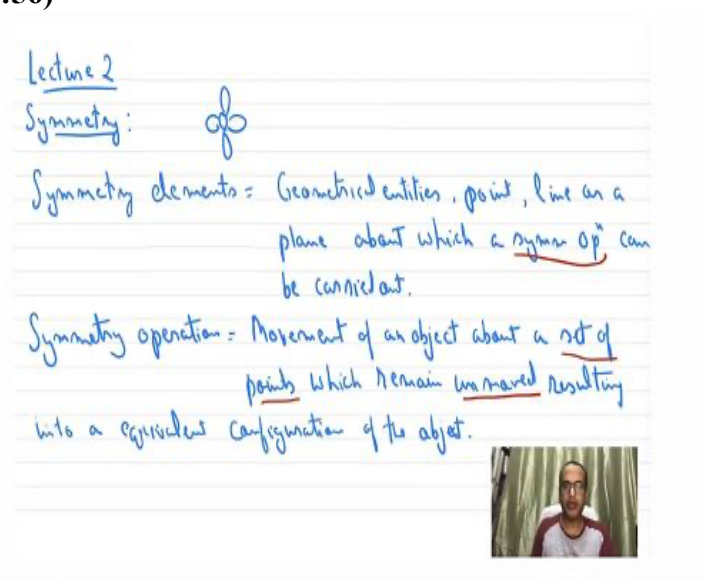 :50)
Lecture 2
Symmetry:
Symmetry elements = Geometrical entities, point, line or a
plane about which a symm opⁿ can
be carried out.
Symmetry operation = Movement of an object about a set of
points which remain unmoved resulting
into a equivalent configuration of the object.